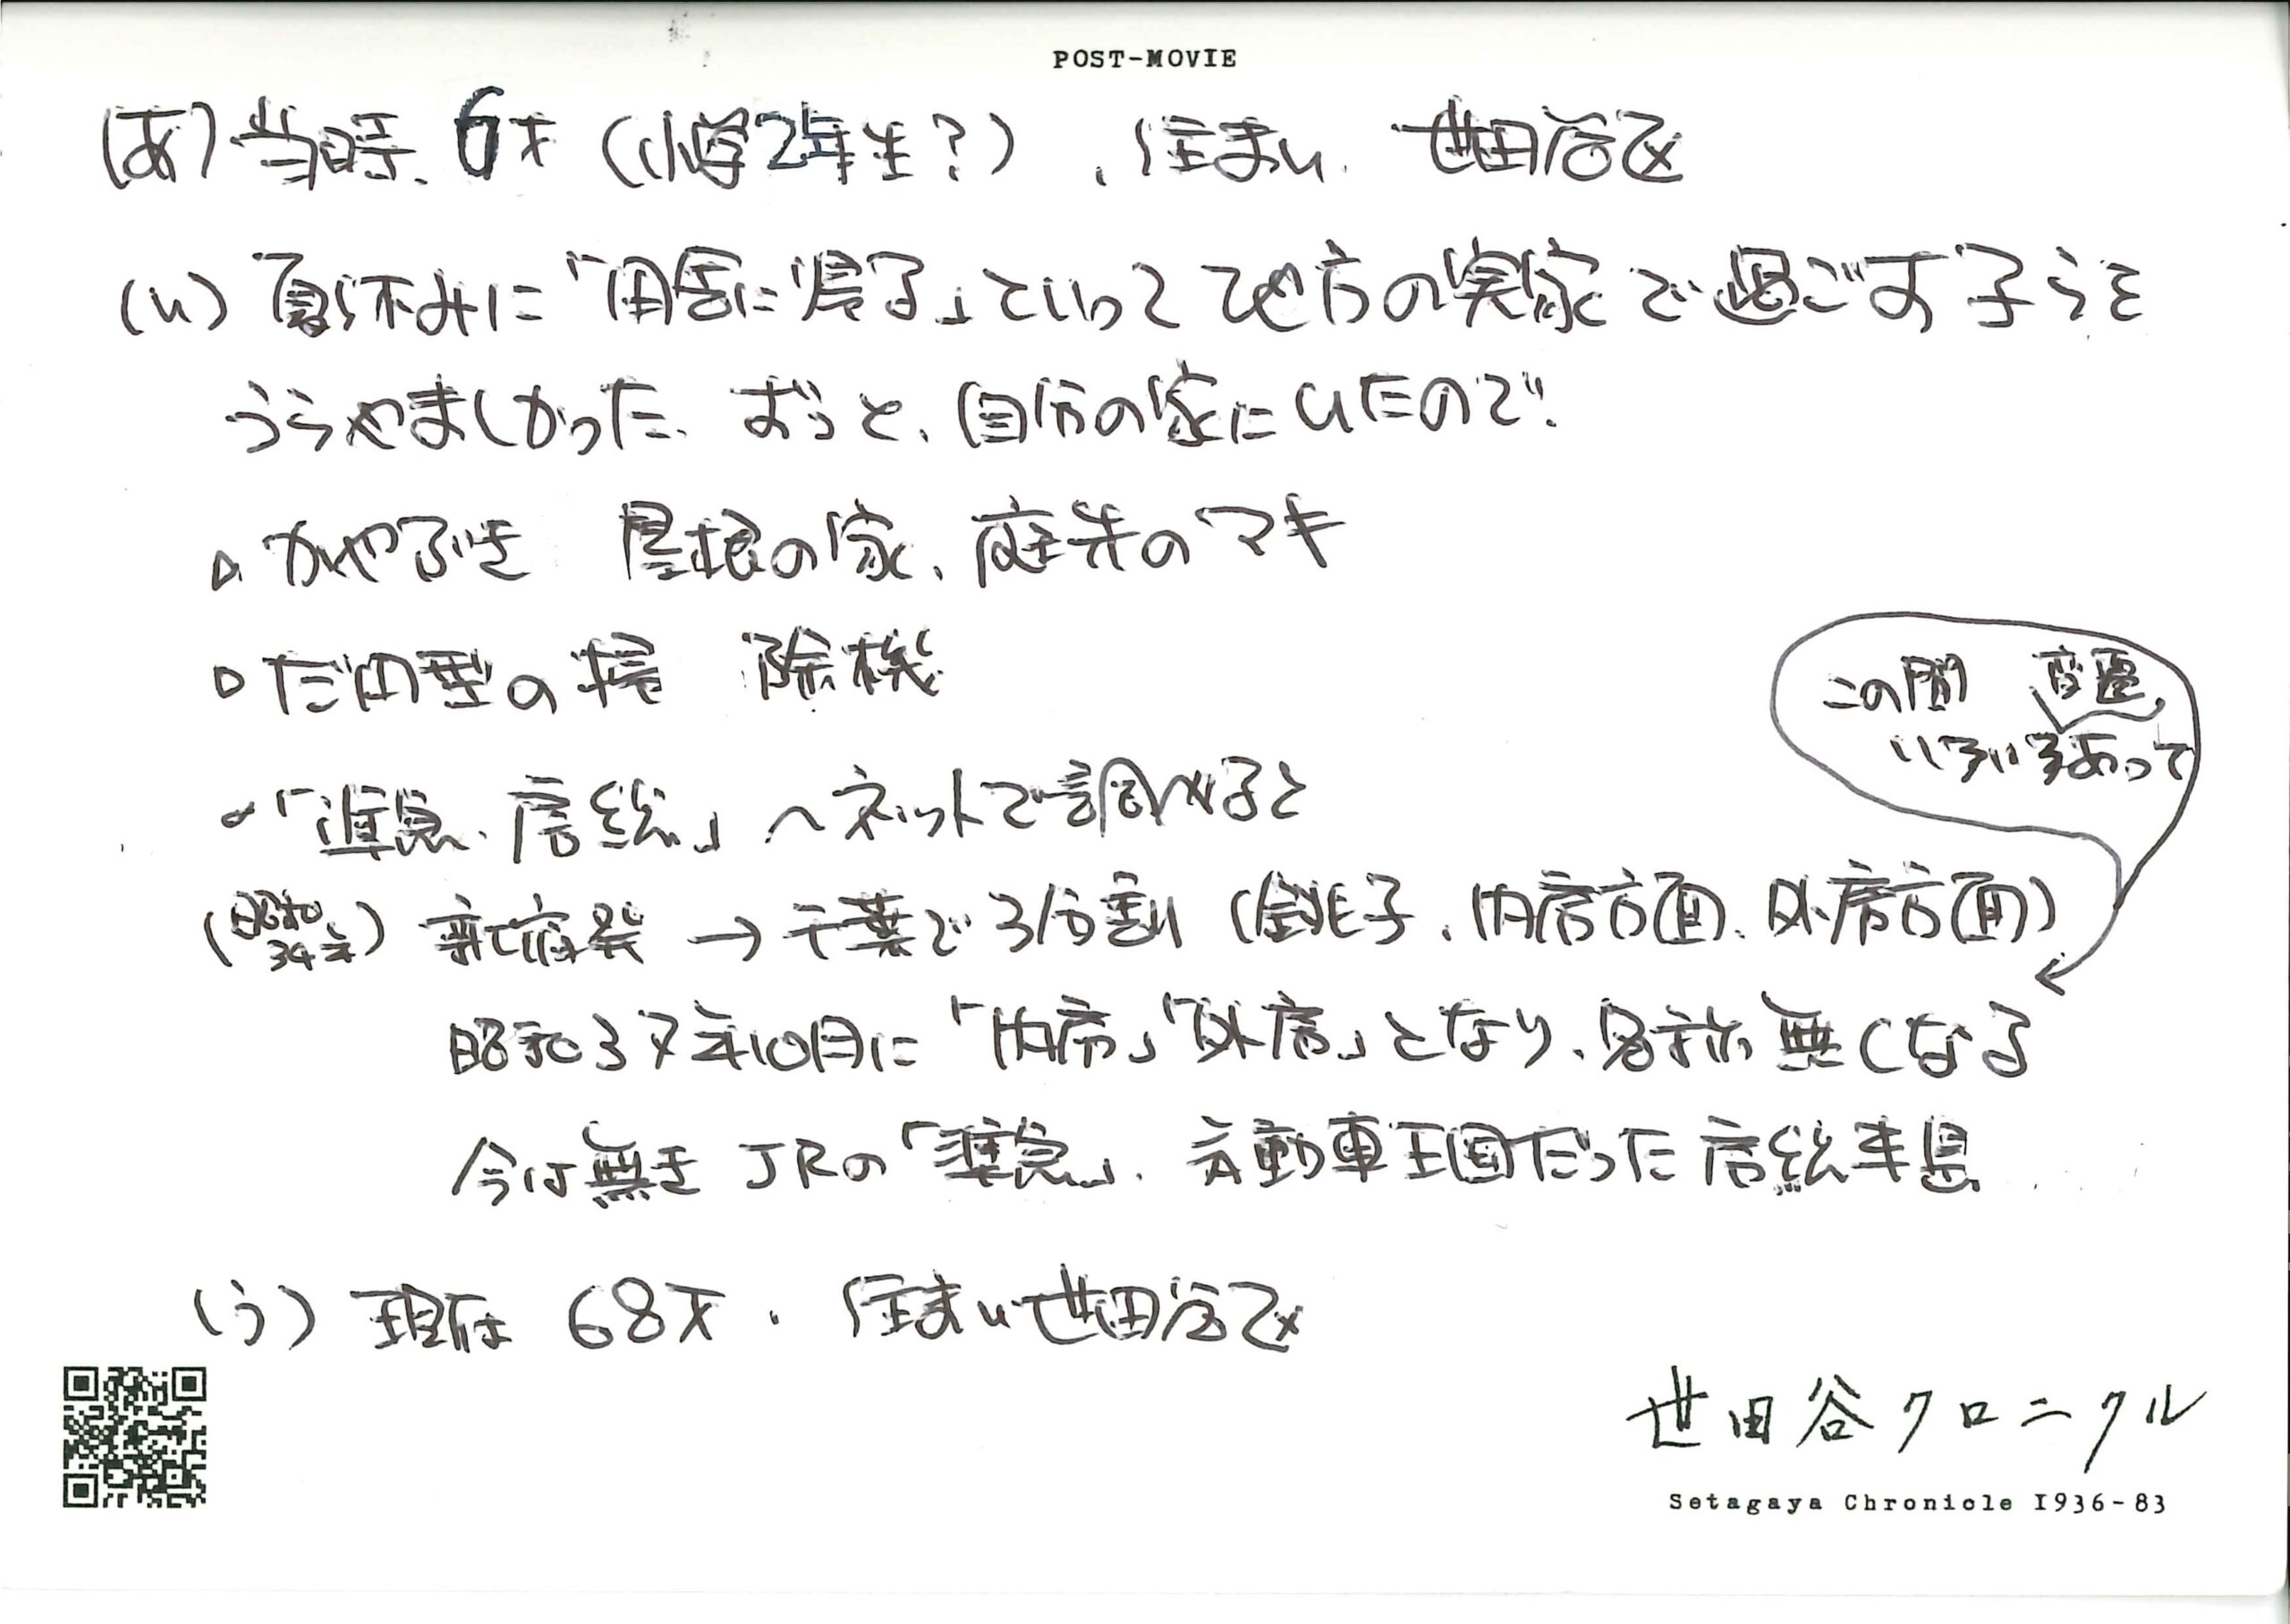 POST-MOVIE
(あ) 当時、6才 (小学2年生?)、住まい、世田谷区
(い) 夏休みに「田舎に帰る」といって地方の実家で過ごす子らを
うらやましかった。ずっと、自分の家にいたので。
かやぶき 屋根の家、庭先のマキ
だ円型の掃 除機
「準急、房総」へネットで調べると
この間 変遷、
いろいろあって
(昭和34年) 新宿発 → 千葉で3分割 (銚子、内房方面、外房方面)
昭和37年10月に「内房」「外房」となり、名称無くなる
今は無き JRの「準急」、気動車王国だった房総半島
(う) 現在 68才、住まい世田谷区
世田谷クロニクル
Setagaya Chronicle 1936-83